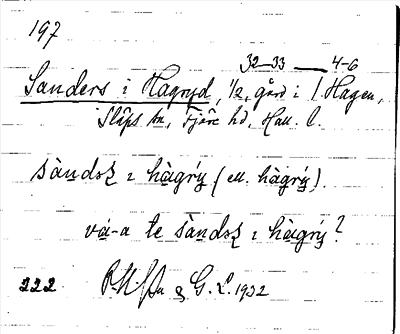 197
32–33 — 4–6
Sanders i Hagryd, 1/2, gård i / Hagen,
Släps sn, Fjäre hd, Hall. l.
sàndsʐ ɪ hàgrý̱ (ell. hàgrý̱).
vá-a te sàndsʐ ɪ hàgrý̱?
222 & G. L. 1932